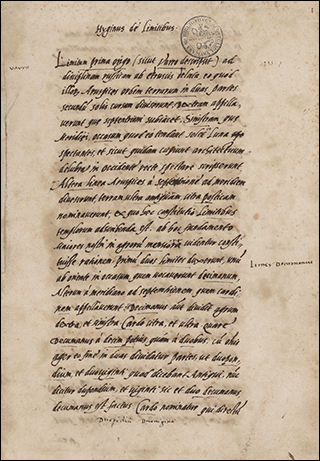 Hyginus de Limitibus.
Limitum prima origo (sicut Varro descripsit) ad
disciplinam rusticam ab etruscis relata, eo quod
illor. Aruspices orbem terrarum in duas partes
secundū solis cursum diviserunt. dextram appella-
verunt que septentrioni subiacet. Sinistram que
Meridiei. occasum quod eo sol et Luna
spectantes, et sicut quidam
delubra in occidentē recte spectare scripserunt.
Altera linea Aruspices à septentrione ad meridiem
diviserunt, terram ultra antiquam, citra posticam
nominaverunt, ex quo hoc constitutū Limitibus
templorum adscribenda est. ab hoc fundamento
maiores nostri in agrorū mensuris videntur consti-
tuisse rationem. prima duos limites duxerunt, unū
ab oriente in occasum, quem vocaverunt decimanum.
Alterum à meridiano ad septentrionem, quem cardi-
nem appellaverunt. Decimanus autē dividit agrum
dextra et sinistra Cardo citra, et ultra quare
decumanus à decem potius, quam à duobus. cū omnis
ager eo fine in duas dividatur partes, ut duopon-
dium, et duoviginti quod dicebant Antiqui. nūc
dicitur dupondium, et viginti sic et duo decumanus
decumanus est factus. Cardo nominatur, qui directū
VARRO
Limes Decumanus
Duopondiū Duoviginti
1